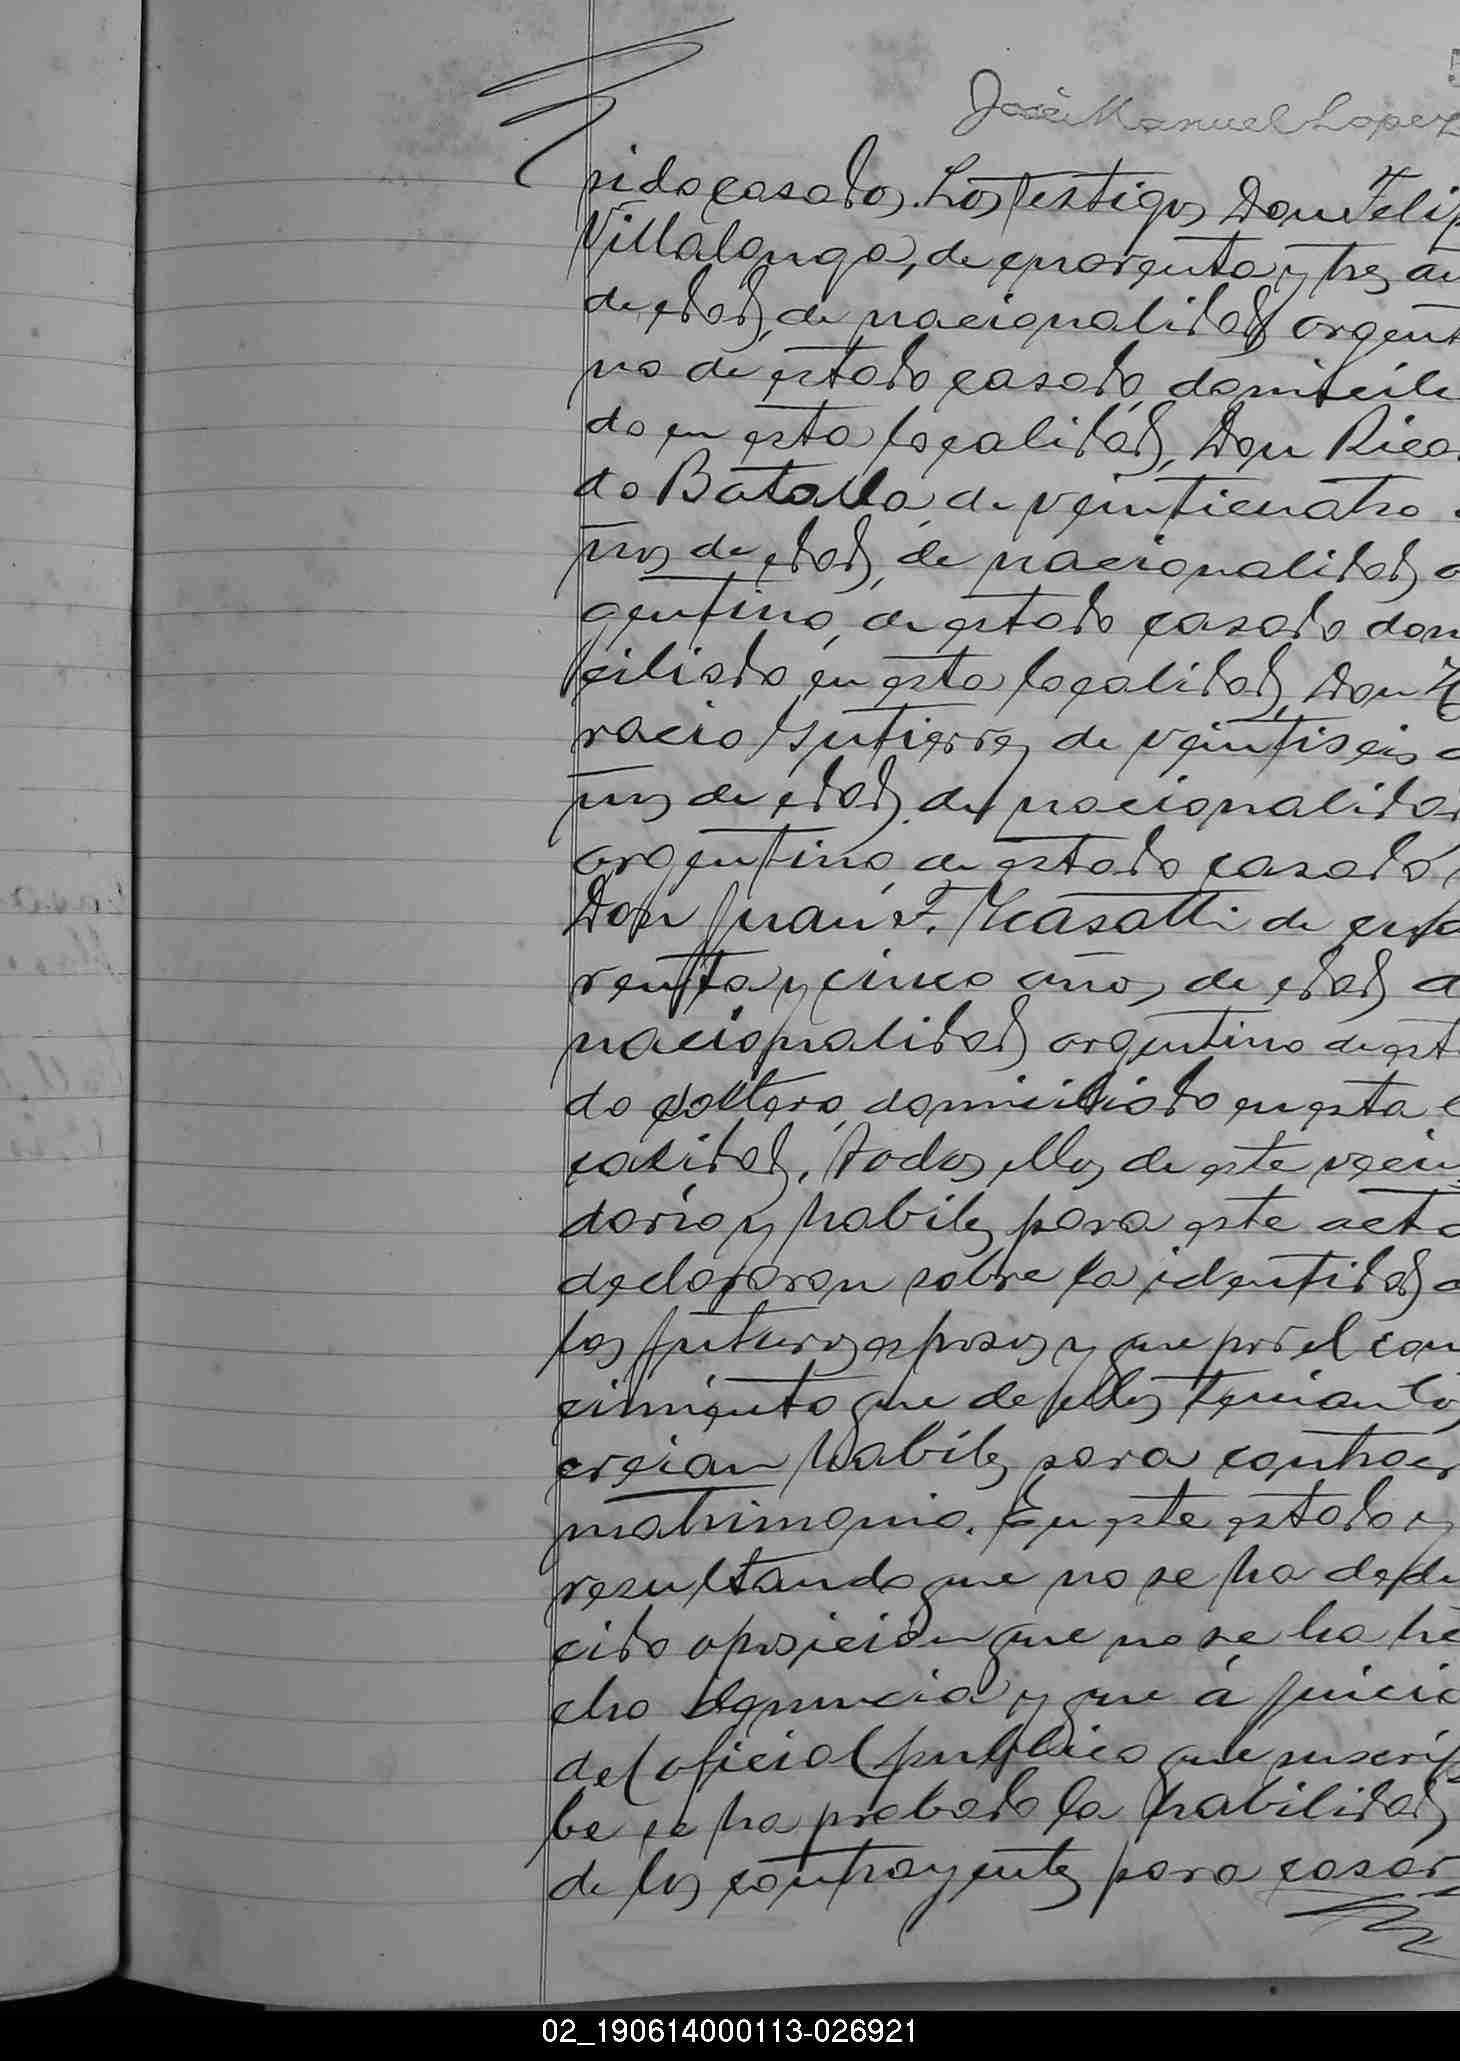 José Manuel Lopez
sido casados. Los testigos Don Felip
Villalonga, de cuarenta y tres añ
de edad, de nacionalidad argent
no de estado casado, domicilia
do en esta localidad, Don Ricar
do Batalla, de veinticuatro a
ños de edad, de nacionalidad a
gentino, de estado casado dom
ciliado en esta localidad, Don H
racio Gutierrez de veintiseis a
ños de edad, de nacionalidad
argentino, de estado casado,
Don Juan F. de cua
renta y cinco años de edad d
nacionalidad argentino de esta
do soltero, domiciliado en esta l
calidad, todos ellos de este vecin
dario y habiles para este acto
declararon sobre la identidad d
los futuros esposos y que por el cono
cimiento que de ellos tenian los
creian habiles para contraer
matrimonio. En este estado y
resultando que no se ha dedu
cido oposición que no se ha he
cho denuncia y que á juicio
del oficial publico que suscri
be se ha probado la habilidad
de los contrayentes para casar
02_190614000113-026921